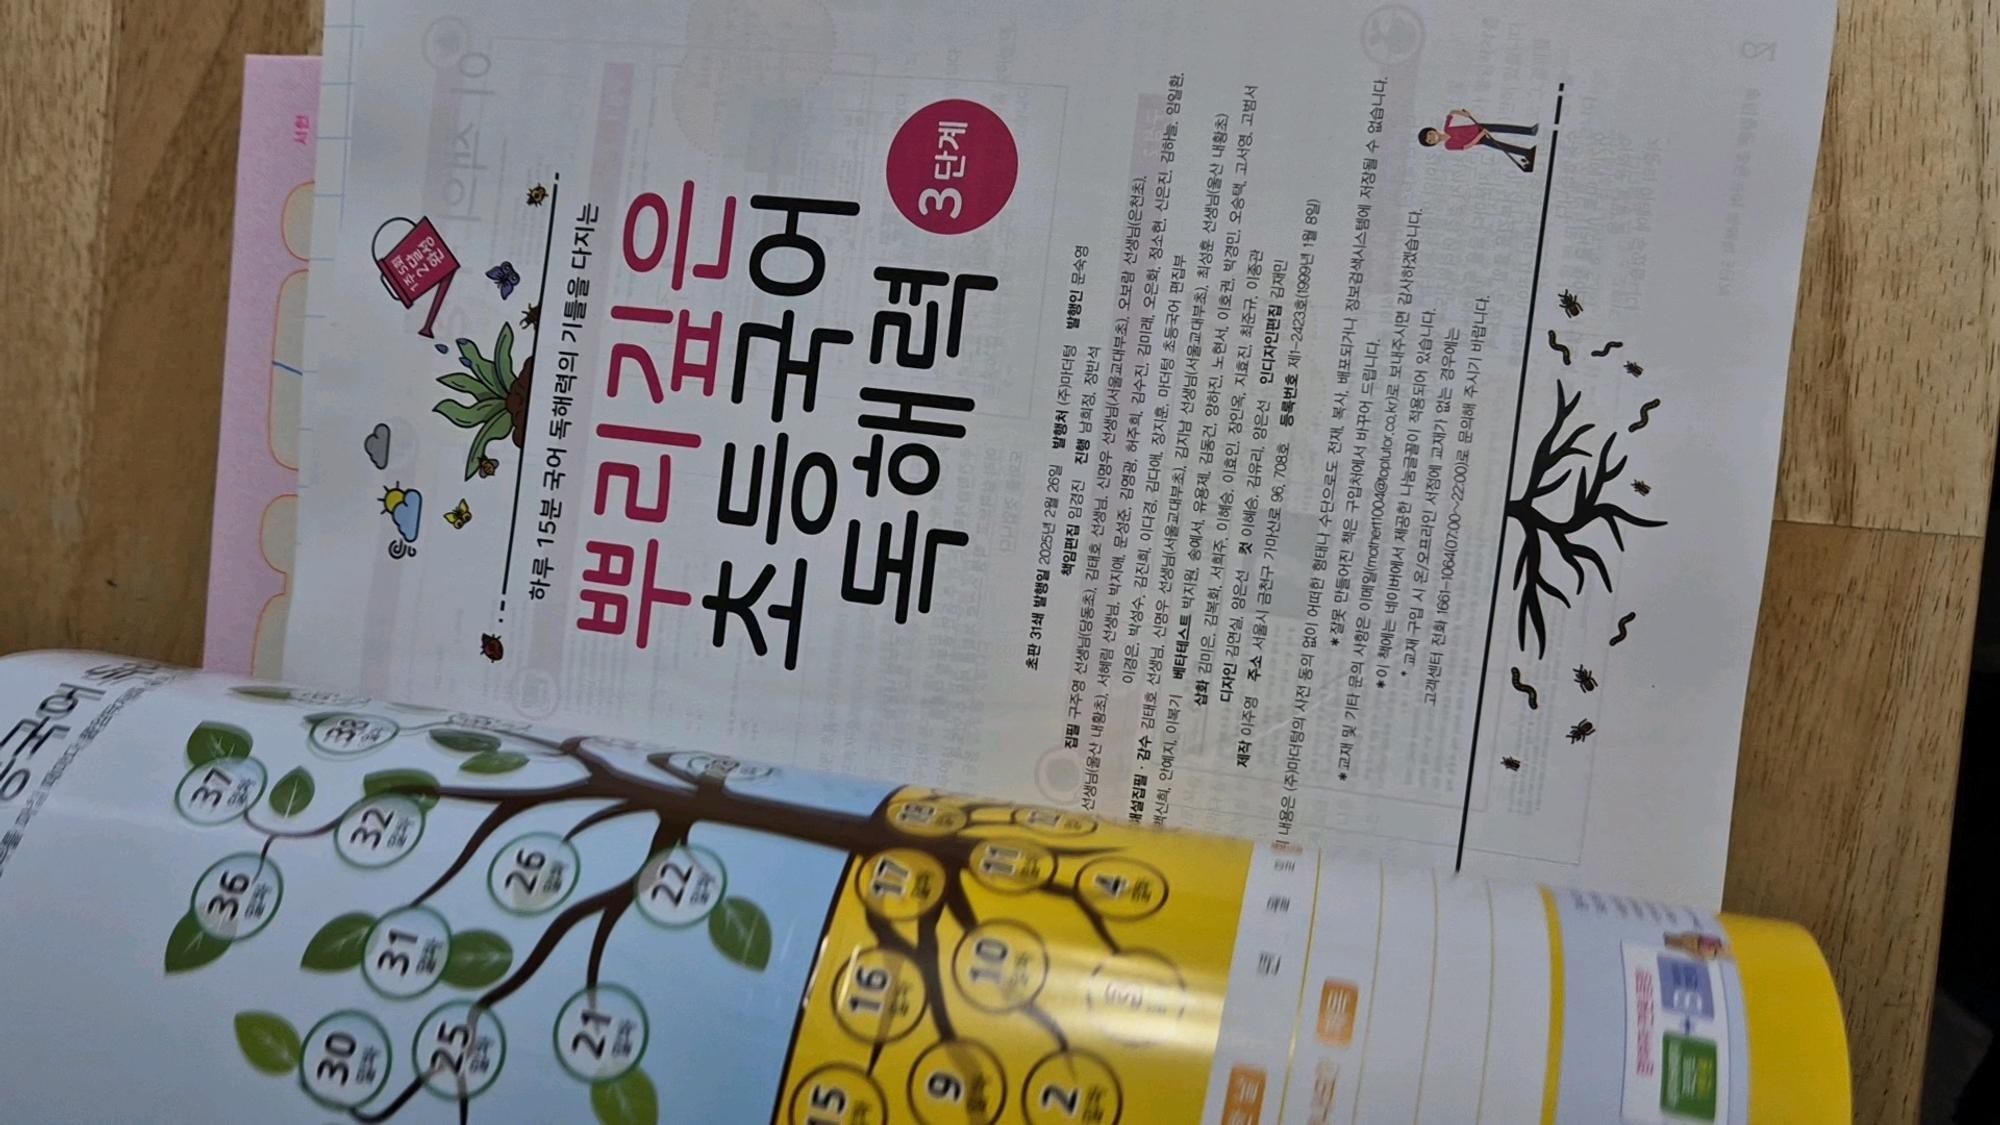 1주 5회
묶음
2권
하루 15분 국어 독해력의 기틀을 다지는
뿌리깊은
초등국어
독해력
3단계
초판 31쇄 발행일 2025년 2월 26일 발행처 (주)마더텅 발행인 문숙영
책임편집 임경진 진행 남희정, 정반석
집필 구주영 선생님(당동초), 김태호 선생님, 신명우 선생님(서울교대부초), 오보람 선생님(은천초),
선생님(울산 내황초), 서혜림 선생님, 박지애, 문성준, 김영광, 허주희, 김수진, 김미래, 오은화, 정소현, 신은진, 김하늘, 임일환,
이경은, 박성수, 김진희, 이다경, 김다애, 장지훈, 마더텅 초등국어 편집부
해설집필 · 감수 김태호 선생님, 신명우 선생님(서울교대부초), 김지남 선생님(서울교대부초), 최성훈 선생님(울산 내황초)
백신희, 안예지, 이복기 베타테스트 박지원, 송예서, 유용제, 김동건, 양하진, 노현서, 이호권, 박경민, 오승택, 고서영, 고범서
삽화 김미은, 김복화, 서희주, 이혜승, 이효인, 장인옥, 지효진, 최준규, 이종관
디자인 김연실, 양은선 컷 이혜승, 김유리, 양은선 인디자인편집 김재민
제작 이주영 주소 서울시 금천구 가마산로 96, 708호 등록번호 제1-2423호(1999년 1월 8일)
내용은 (주)마더텅의 사전 동의 없이 어떠한 형태나 수단으로도 전재, 복사, 배포되거나 정보검색시스템에 저장될 수 없습니다.
*잘못 만들어진 책은 구입처에서 바꾸어 드립니다.
*교재 및 기타 문의 사항은 이메일(mother1004@toptutor.co.kr)로 보내주시면 감사하겠습니다.
*이 책에는 네이버에서 제공한 나눔글꼴이 적용되어 있습니다.
*교재 구입 시 온/오프라인 서점에 교재가 없는 경우에는
고객센터 전화 1661-1064(07:00~22:00)로 문의해 주시기 바랍니다.
서현
국어
38
37
32
36
26
22
31
30
25
21
18
12
17
11
4
16
10
15
9
2